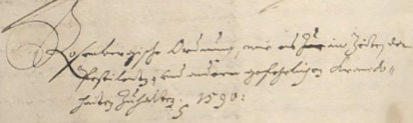 Rosenbergische Ordnung, wie es Zur in Zeiten der
Pestilentz, und andern gefehrlichen Kranck-
heiten Zuhalten. 1590.